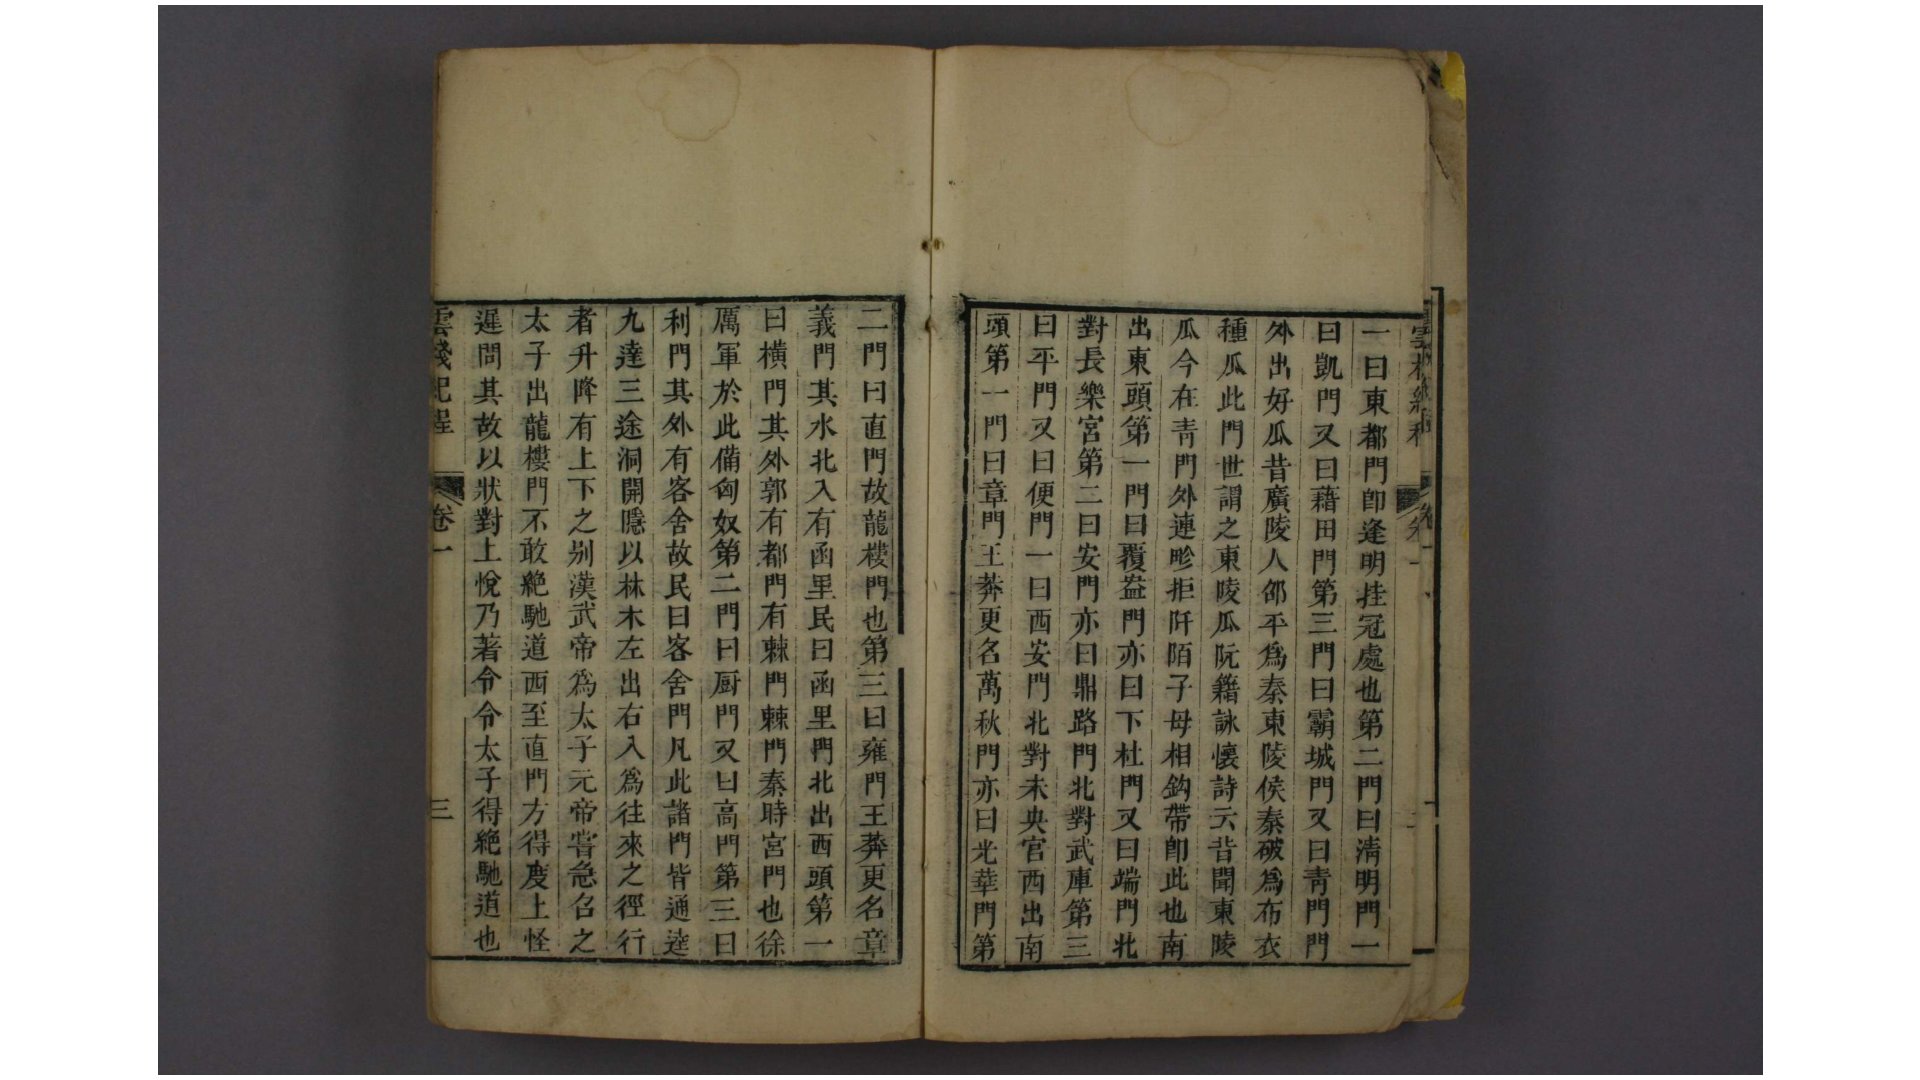 一曰東都門卽逢明挂冠處也第二門曰清明門一
曰凱門又曰藉田門第三門曰霸城門又曰青門門
外出好瓜昔廣陵人邵平爲秦東陵侯秦破爲布衣
種瓜此門世謂之東陵瓜阮籍詠懷詩云昔聞東陵
瓜今在青門外連畛拒阡陌子母相鈎帶卽此也南
出東頭第一門曰覆盎門亦曰下杜門又曰端門北
對長樂宮第二曰安門亦曰鼎路門北對武庫第三
曰平門又曰便門一曰西安門北對未央宮西出南
頭第一門曰章門王莽更名萬秋門亦曰光華門第
二門曰直門故龍樓門也第三曰雍門王莽更名章
義門其水北入有函里民曰函里門北出西頭第一
曰橫門其外郭有都門有棘門棘門秦時宮門也徐
厲軍於此備匈奴第二門曰厨門又曰高門第三曰
利門其外有客舍故民曰客舍門凡此諸門皆通逵
九達三途洞開隱以林木左出右入爲往來之徑行
者升降有上下之别漢武帝爲太子元帝嘗急召之
太子出龍樓門不敢絶馳道西至直門方得度上怪
遲問其故以狀對上悅乃著令令太子得絶馳道也
雲棧紀程 卷一 三